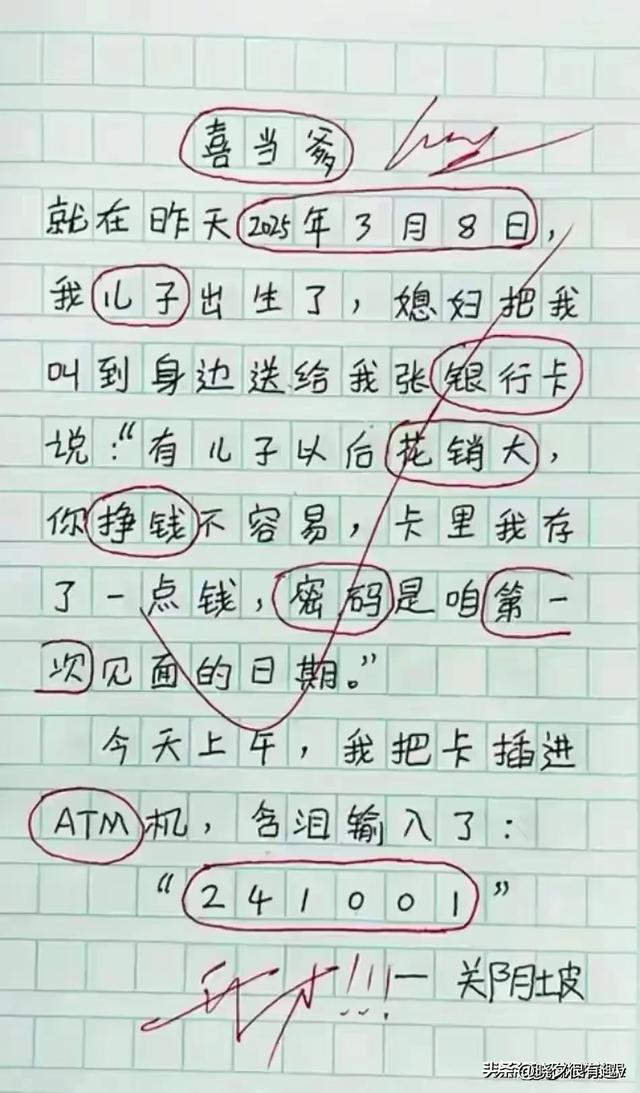 喜当爹
就在昨天2025年3月8日，
我儿子出生了，媳妇把我
叫到身边送给我张银行卡
说：“有儿子以后花销大，
你挣钱不容易，卡里我存
了一点钱，密码是咱第一
次见面的日期。”
今天上午，我把卡插进
ATM机，含泪输入了：
“241001”
!!!
头条 @晓艾很有趣